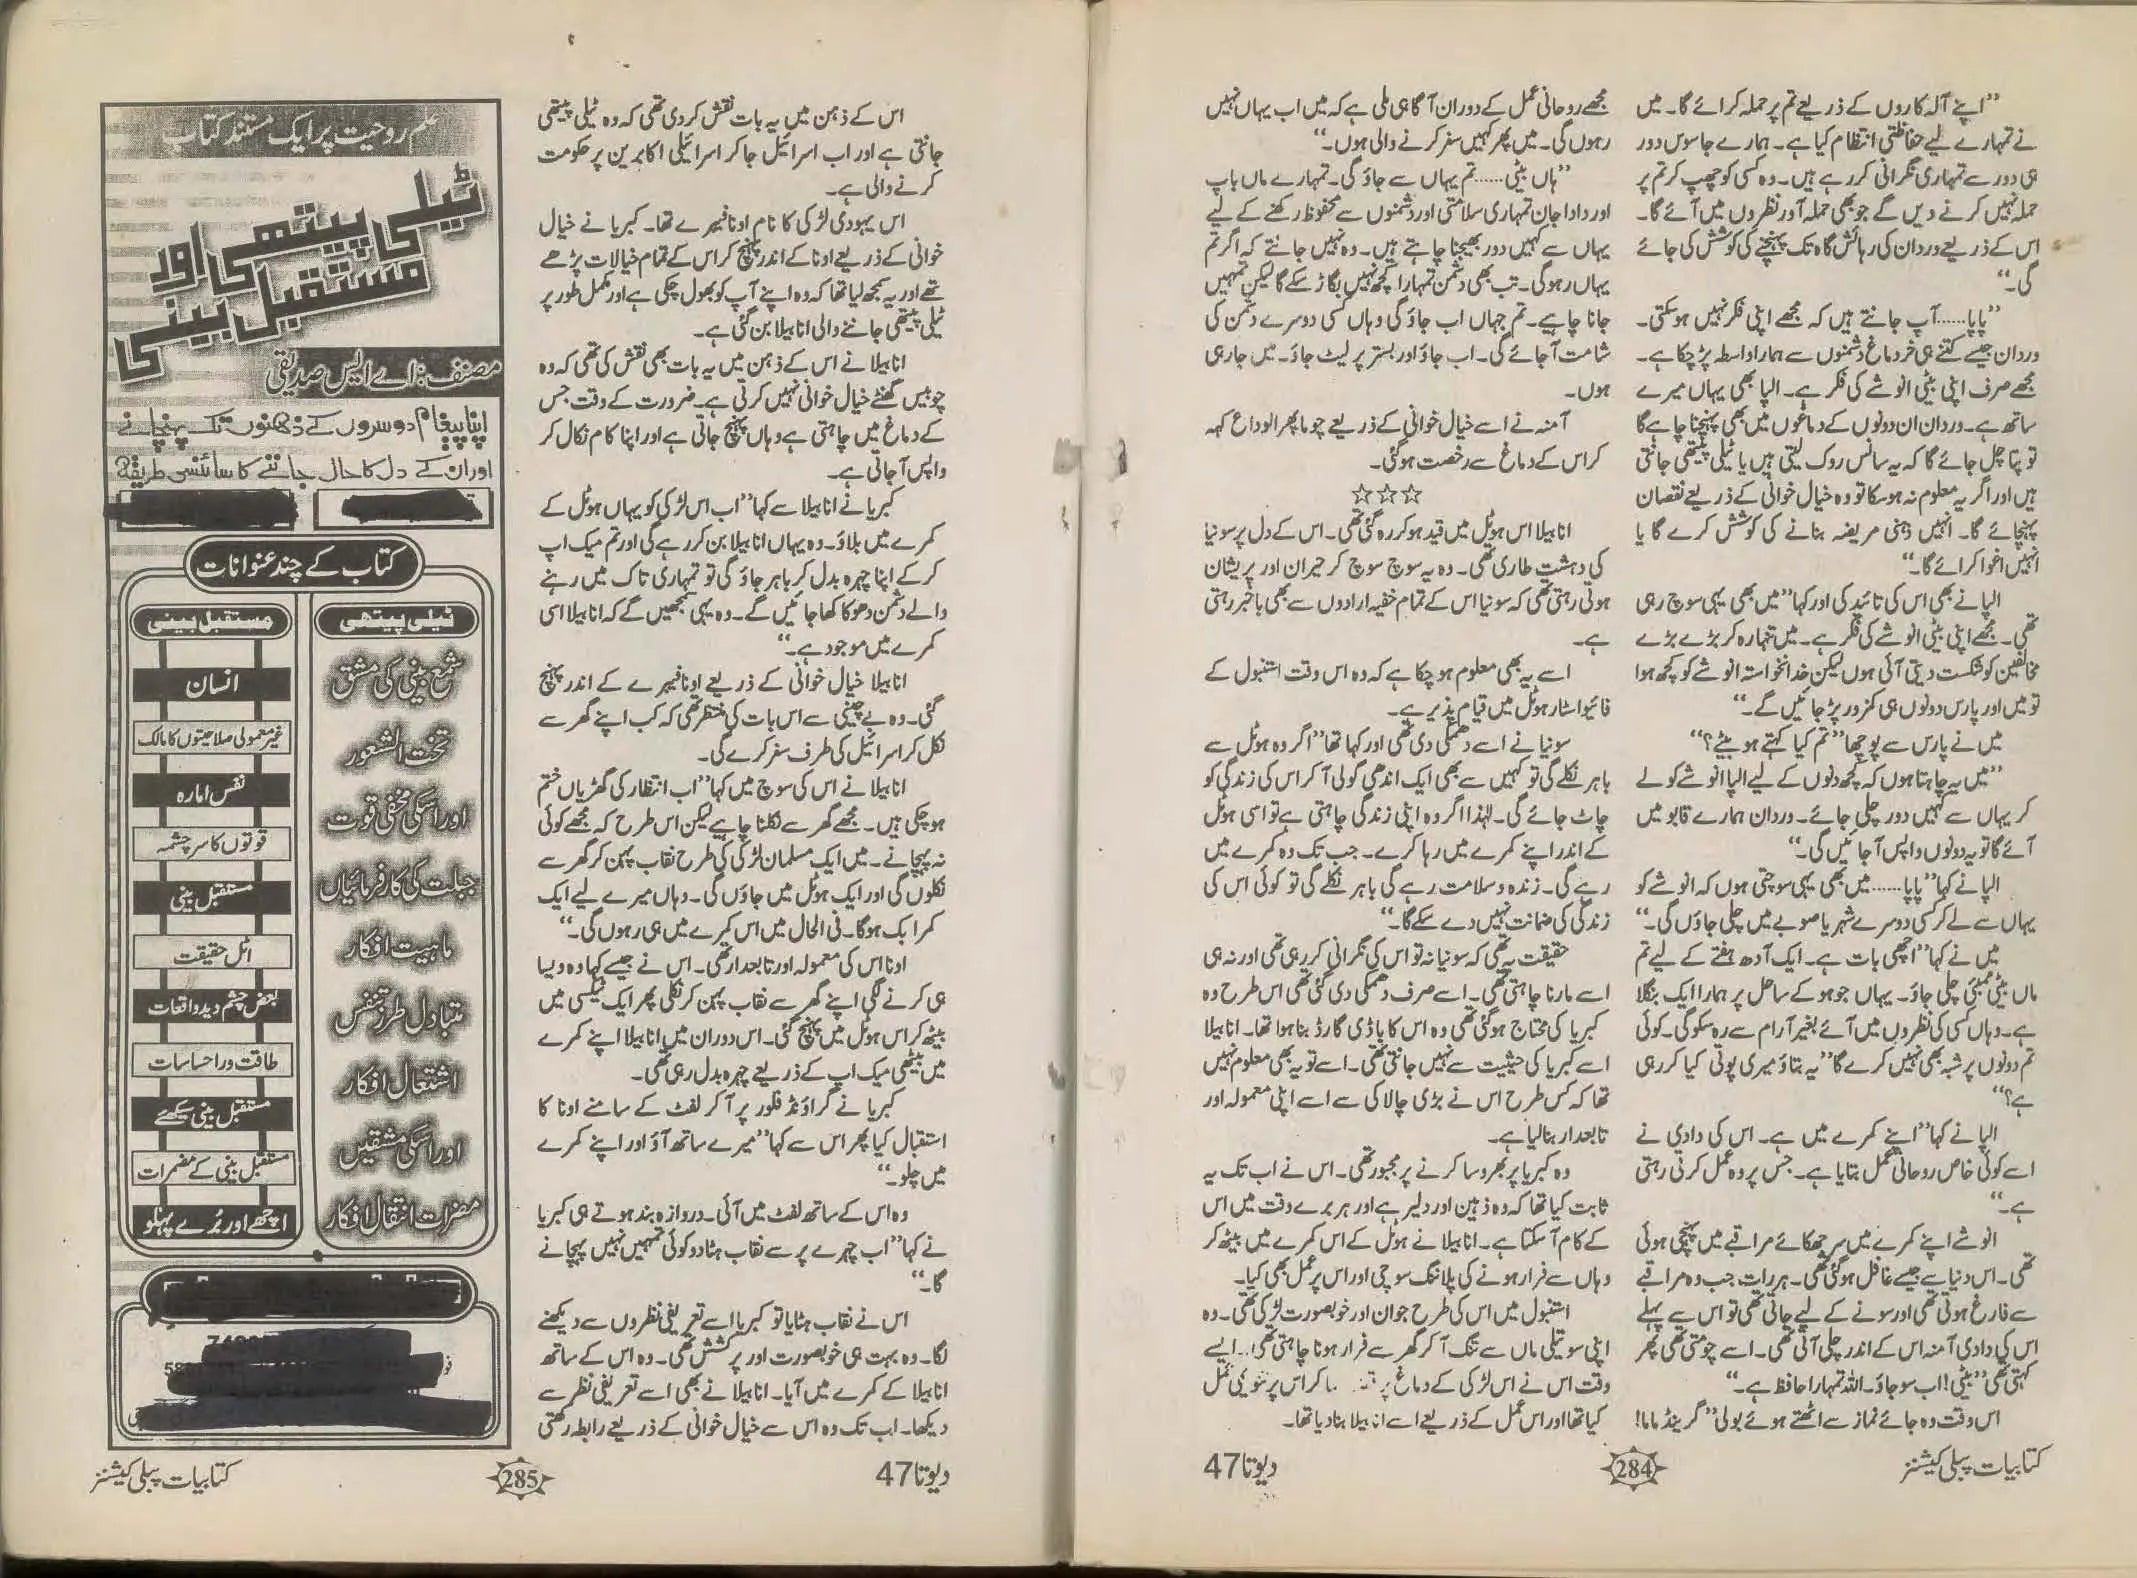 ”اپنے آلہ کاروں کے ذریعے تم پر حملہ کرائے گا۔ میں
نے تمہارے لیے حفاظتی انتظام کیا ہے۔ ہمارے جاسوس دور
ہی دور سے تمہاری نگرانی کر رہے ہیں۔ وہ کسی کو چھپ کر تم پر
حملہ نہیں کرنے دیں گے جو بھی حملہ آور نظروں میں آئے گا۔
اس کے ذریعے وردان کی رہائش گاہ تک پہنچنے کی کوشش کی جائے
گی۔“
”پاپا...... آپ جانتے ہیں کہ مجھے اپنی فکر نہیں ہو سکتی۔
وردان جیسے کتنے ہی خر دماغ دشمنوں سے ہمارا واسطہ پڑ چکا ہے۔
مجھے صرف اپنی بیٹی انوشے کی فکر ہے۔ الپا بھی یہاں میرے
ساتھ ہے۔ وردان ان دونوں کے دماغوں میں بھی پہنچنا چاہے گا
تو پتا چل جائے گا کہ یہ سانس روک لیتی ہیں یا ٹیلی پیتھی جانتی
ہیں اور اگر یہ معلوم نہ ہو سکا تو وہ خیال خوانی کے ذریعے نقصان
پہنچائے گا۔ انہیں ذہنی مریضہ بنانے کی کوشش کرے گا یا
انہیں اغوا کرائے گا۔“
الپا نے بھی اس کی تائید کی اور کہا ”میں بھی یہی سوچ رہی
تھی۔ مجھے اپنی بیٹی انوشے کی فکر ہے۔ میں تنہا رہ کر بڑے بڑے
مخالفین کو شکست دیتی آئی ہوں لیکن خدانخواستہ انوشے کو کچھ ہوا
تو میں اور پارس دونوں ہی کمزور پڑ جائیں گے۔“
میں نے پارس سے پوچھا ”تم کیا کہتے ہو بیٹے؟“
”میں یہ چاہتا ہوں کہ کچھ دنوں کے لیے الپا انوشے کو لے
کر یہاں سے کہیں دور چلی جائے۔ وردان ہمارے قابو میں
آئے گا تو یہ دونوں واپس آ جائیں گی۔“
الپا نے کہا ”پاپا...... میں بھی یہی سوچتی ہوں کہ انوشے کو
یہاں سے لے کر کسی دوسرے شہر یا صوبے میں چلی جاؤں گی۔“
میں نے کہا ”اچھی بات ہے۔ ایک آدھ ہفتے کے لیے تم
ماں بیٹی ممبئی چلی جاؤ۔ یہاں جوہو کے ساحل پر ہمارا ایک بنگلا
ہے۔ وہاں کسی کی نظروں میں آئے بغیر آرام سے رہ سکو گی۔ کوئی
تم دونوں پر شبہ بھی نہیں کرے گا“ یہ بتاؤ میری پوتی کیا کر رہی
ہے؟“
الپا نے کہا ”اپنے کمرے میں ہے۔ اس کی دادی نے
اسے کوئی خاص روحانی عمل بتایا ہے۔ جس پر وہ عمل کرتی رہتی
ہے۔“
انوشے اپنے کمرے میں سر جھکائے مراقبے میں پہنچی ہوئی
تھی۔ اس دنیا سے جیسے غافل ہو گئی تھی۔ ہر رات جب وہ مراقبے
سے فارغ ہوتی تھی اور سونے کے لیے جاتی تھی تو اس سے پہلے
اس کی دادی آمنہ اس کے اندر چلی آتی تھی۔ اسے چومتی تھی پھر
کہتی تھی ”بیٹی! اب سو جاؤ۔ اللہ تمہارا حافظ ہے۔“
اس وقت وہ جائے نماز سے اٹھتے ہوئے بولی ”گرینڈ ماما!
مجھے روحانی عمل کے دوران آگاہی ملی ہے کہ میں اب یہاں نہیں
رہوں گی۔ میں پھر کہیں سفر کرنے والی ہوں۔“
”ہاں بیٹی...... تم یہاں سے جاؤ گی۔ تمہارے ماں باپ
اور دادا جان تمہاری سلامتی اور دشمنوں سے محفوظ رکھنے کے لیے
یہاں سے کہیں دور بھیجنا چاہتے ہیں۔ وہ نہیں جانتے کہ اگر تم
یہاں رہو گی۔ تب بھی دشمن تمہارا کچھ نہیں بگاڑ سکے گا لیکن تمہیں
جانا چاہیے۔ تم جہاں اب جاؤ گی وہاں کسی دوسرے دشمن کی
شامت آ جائے گی۔ اب جاؤ اور بستر پر لیٹ جاؤ۔ میں جا رہی
ہوں۔
آمنہ نے اسے خیال خوانی کے ذریعے چوما پھر الوداع کہہ
کر اس کے دماغ سے رخصت ہو گئی۔
☆☆☆
انابیلا اس ہوٹل میں قید ہو کر رہ گئی تھی۔ اس کے دل پر سونیا
کی دہشت طاری تھی۔ وہ یہ سوچ سوچ کر حیران اور پریشان
ہوتی رہتی تھی کہ سونیا اس کے تمام خفیہ ارادوں سے بھی باخبر رہتی
ہے۔
اسے یہ بھی معلوم ہو چکا ہے کہ وہ اس وقت استنبول کے
فائیو اسٹار ہوٹل میں قیام پذیر ہے۔
سونیا نے اسے دھمکی دی تھی اور کہا تھا ”اگر وہ ہوٹل سے
باہر نکلے گی تو کہیں سے بھی ایک اندھی گولی آ کر اس کی زندگی کو
چاٹ جائے گی۔ لہٰذا اگر وہ اپنی زندگی چاہتی ہے تو اسی ہوٹل
کے اندر اپنے کمرے میں رہا کرے۔ جب تک وہ کمرے میں
رہے گی۔ زندہ و سلامت رہے گی باہر نکلے گی تو کوئی اس کی
زندگی کی ضمانت نہیں دے سکے گا۔“
حقیقت یہ تھی کہ سونیا نہ تو اس کی نگرانی کر رہی تھی اور نہ ہی
اسے مارنا چاہتی تھی۔ اسے صرف دھمکی دی گئی تھی اس طرح وہ
کبریا کی محتاج ہو گئی تھی وہ اس کا باڈی گارڈ بنا ہوا تھا۔ انابیلا
اسے کبریا کی حیثیت سے نہیں جانتی تھی۔ اسے تو یہ بھی معلوم نہیں
تھا کہ کس طرح اس نے بڑی چالاکی سے اسے اپنی معمولہ اور
تابعدار بنا لیا ہے۔
وہ کبریا پر بھروسا کرنے پر مجبور تھی۔ اس نے اب تک یہ
ثابت کیا تھا کہ وہ ذہین اور دلیر ہے اور ہر برے وقت میں اس
کے کام آ سکتا ہے۔ انابیلا نے ہوٹل کے اس کمرے میں بیٹھ کر
وہاں سے فرار ہونے کی پلاننگ سوچی اور اس پر عمل بھی کیا۔
استنبول میں اس کی طرح جوان اور خوبصورت لڑکی تھی۔ وہ
اپنی سوتیلی ماں سے تنگ آ کر گھر سے فرار ہونا چاہتی تھی۔ ایسے
وقت اس نے اس لڑکی کے دماغ پر کر اس پر تنویمی عمل
کیا تھا اور اس عمل کے ذریعے اسے انابیلا بنا دیا تھا۔
کتابیات پبلی کیشنز
284
دیوتا 47
اس کے ذہن میں یہ بات نقش کر دی تھی کہ وہ ٹیلی پیتھی
جانتی ہے اور اب اسرائیل جا کر اسرائیلی اکابرین پر حکومت
کرنے والی ہے۔
اس یہودی لڑکی کا نام اونا فیبرے تھا۔ کبریا نے خیال
خوانی کے ذریعے اونا کے اندر پہنچ کر اس کے تمام خیالات پڑھے
تھے اور یہ سمجھ لیا تھا کہ وہ اپنے آپ کو بھول چکی ہے اور مکمل طور پر
ٹیلی پیتھی جاننے والی انابیلا بن گئی ہے۔
انابیلا نے اس کے ذہن میں یہ بات بھی نقش کی تھی کہ وہ
چوبیس گھنٹے خیال خوانی نہیں کرتی ہے۔ ضرورت کے وقت جس
کے دماغ میں چاہتی ہے وہاں پہنچ جاتی ہے اور اپنا کام نکال کر
واپس آ جاتی ہے۔
کبریا نے انابیلا سے کہا ”اب اس لڑکی کو یہاں ہوٹل کے
کمرے میں بلاؤ۔ وہ یہاں انابیلا بن کر رہے گی اور تم میک اپ
کر کے اپنا چہرہ بدل کر باہر جاؤ گی تو تمہاری تاک میں رہنے
والے دشمن دھوکا کھا جائیں گے۔ وہ یہی سمجھیں گے کہ انابیلا اسی
کمرے میں موجود ہے۔“
انابیلا خیال خوانی کے ذریعے اونا فیبرے کے اندر پہنچ
گئی۔ وہ بے چینی سے اس بات کی منتظر تھی کہ کب اپنے گھر سے
نکل کر اسرائیل کی طرف سفر کرے گی۔
انابیلا نے اس کی سوچ میں کہا ”اب انتظار کی گھڑیاں ختم
ہو چکی ہیں۔ مجھے گھر سے نکلنا چاہیے لیکن اس طرح کہ مجھے کوئی
نہ پہچانے۔ میں ایک مسلمان لڑکی کی طرح نقاب پہن کر گھر سے
نکلوں گی اور ایک ہوٹل میں جاؤں گی۔ وہاں میرے لیے ایک
کمرا بک ہوگا۔ فی الحال میں اس کمرے میں ہی رہوں گی۔“
اونا اس کی معمولہ اور تابعدار تھی۔ اس نے جیسے کہا وہ ویسا
ہی کرنے لگی اپنے گھر سے نقاب پہن کر نکلی پھر ایک ٹیکسی میں
بیٹھ کر اس ہوٹل میں پہنچ گئی۔ اس دوران میں انابیلا اپنے کمرے
میں بیٹھی میک اپ کے ذریعے چہرہ بدل رہی تھی۔
کبریا نے گراؤنڈ فلور پر آ کر لفٹ کے سامنے اونا کا
استقبال کیا پھر اس سے کہا ”میرے ساتھ آؤ اور اپنے کمرے
میں چلو۔“
وہ اس کے ساتھ لفٹ میں آئی۔ دروازہ بند ہوتے ہی کبریا
نے کہا ”اب چہرے پر سے نقاب ہٹا دو کوئی تمہیں نہیں پہچانے
گا۔“
اس نے نقاب ہٹایا تو کبریا اسے تعریفی نظروں سے دیکھنے
لگا۔ وہ بہت ہی خوبصورت اور پرکشش تھی۔ وہ اس کے ساتھ
انابیلا کے کمرے میں آیا۔ انابیلا نے بھی اسے تعریفی نظر سے
دیکھا۔ اب تک وہ اس سے خیال خوانی کے ذریعے رابطہ رکھتی
علم روحیت پر ایک مستند کتاب
ٹیلی پیتھی اور
مستقبل بینی
مصنف: اے ایس صدیقی
اپنا پیغام دوسروں کے ذہنوں تک پہنچانے
اور ان کے دل کا حال جاننے کا سائنسی طریقہ
کتاب کے چند عنوانات
ٹیلی پیتھی
شمع بینی کی مشق
تحت الشعور
اور اسکی مخفی قوت
جبلت کی کارفرمائیاں
ماہیت افکار
متبادل طرز تنفس
اشتعال افکار
اور اسکی مشقیں
مضمرات انتقال افکار
مستقبل بینی
انسان
غیر معمولی صلاحیتوں کا مالک
نفس امارہ
قوتوں کا سرچشمہ
مستقبل بینی
اٹل حقیقت
بعض چشم دید واقعات
طاقت ور احساسات
مستقبل بینی سیکھئے
مستقبل بینی کے مضمرات
اچھے اور بُرے پہلو
دیوتا 47
285
کتابیات پبلی کیشنز